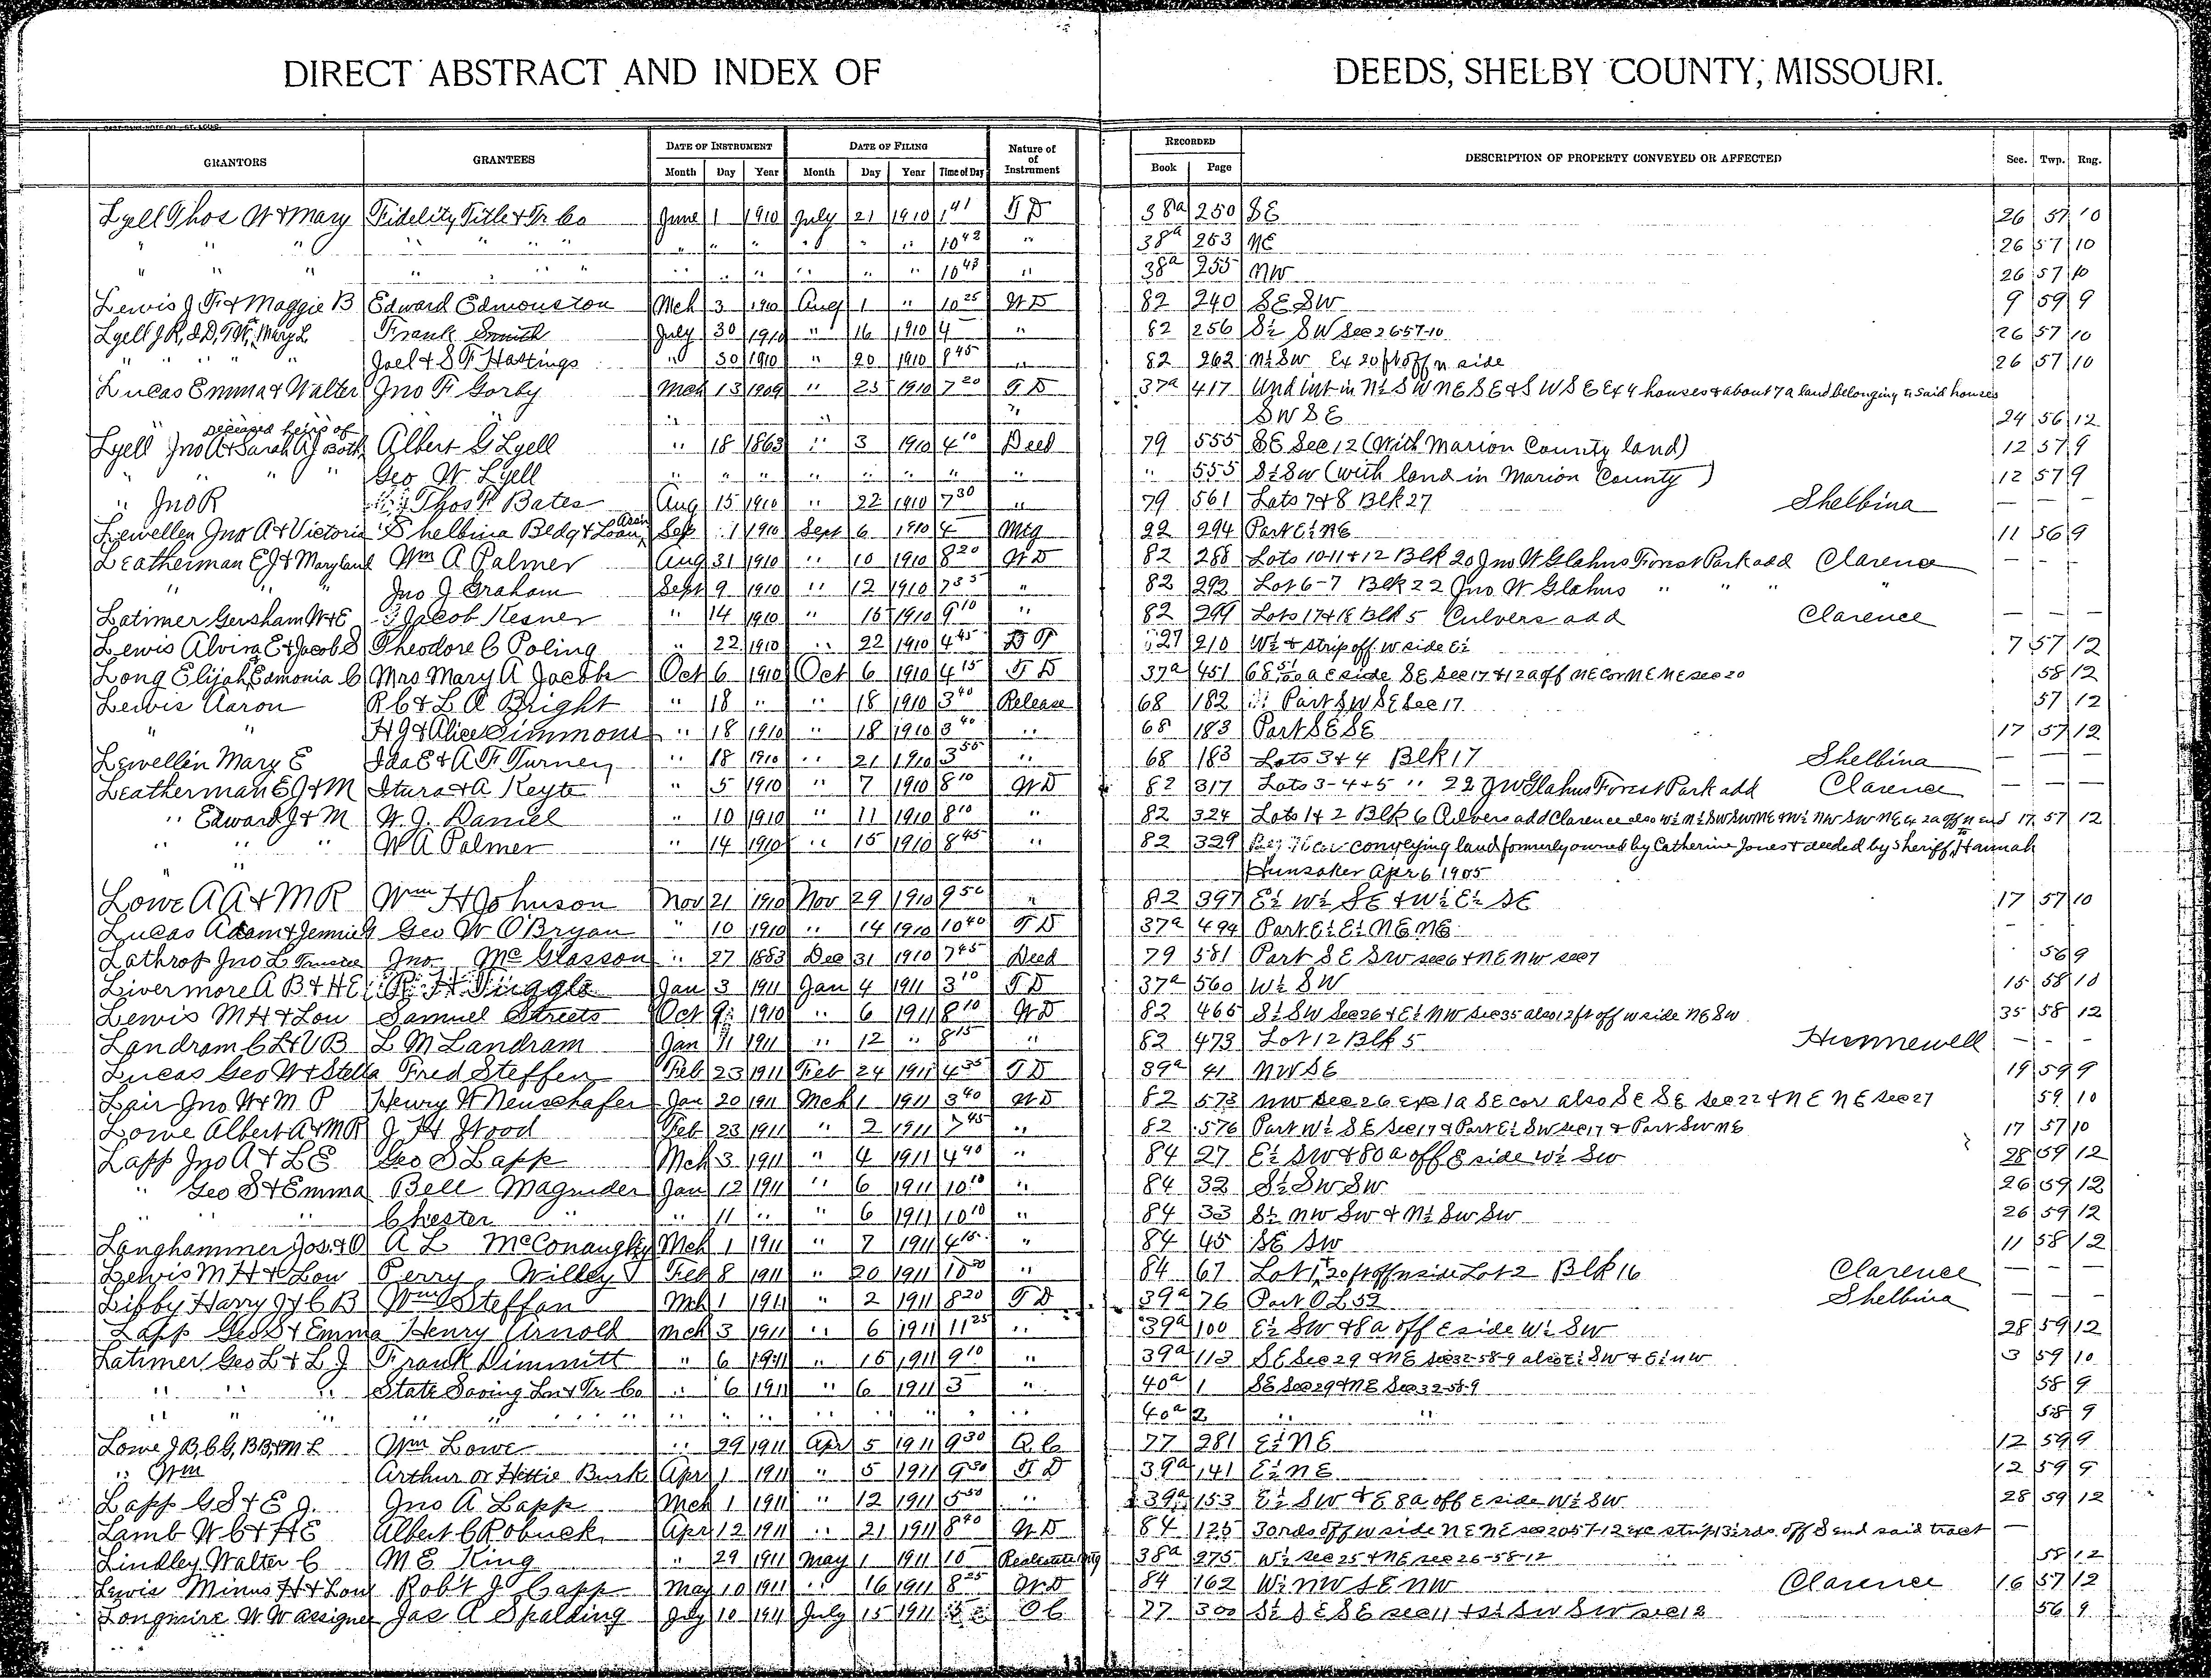 DIRECT ABSTRACT AND INDEX OF DEEDS, SHELBY COUNTY, MISSOURI.
GRANTORS GRANTEES DATE OF INSTRUMENT DATE OF FILING Nature of of Instrument RECORDED DESCRIPTION OF PROPERTY CONVEYED OR AFFECTED Sec. Twp. Rng.
Month Day Year Month Day Year Time of Day Book Page
Lyell Thos W & Mary Fidelity Title & Tr. Co June 1 1910 July 21 1910 1 41 T D 38a 250 SE 26 57 10
" " " " " " " " " " " " " 10 42 " 38a 253 NE 26 57 10
" " " " " " " " " " " " " 10 43 " 38a 255 NW 26 57 10
Lewis J F & Maggie B Edward Edmonston Mch 3 1910 Aug 1 " 10 25 W D 82 240 SE SW 9 59 9
Lyell J R, Mary L Frank Smith July 30 1910 " 16 1910 4 " 82 256 S½ SW Sec 26 57-10 26 57 10
" " " " Joel & S F Hastings " 30 1910 " 20 1910 8 45 " 82 262 N½ SW Ex 20 ft off N side 26 57 10
Lucas Emma & Walter Jno F Gorby Mch 13 1909 " 25 1910 7 20 T D 37a 417 Und int in N½ SW NE SE & SW SE Ex 4 houses & about 7 a land belonging to said houses
" " " SW SE 24 56 12
deceased heirs of
Lyell Jno A & Sarah A J both Albert G Lyell " 18 1863 " 3 1910 4 10 Deed 79 555 SE Sec 12 (With Marion County land) 12 57 9
" " " Geo W Lyell " " " " " " " " " 555 S½ SW (with land in Marion County) 12 57 9
" Jno R Thos P Bates Aug 15 1910 " 22 1910 7 30 " 79 561 Lots 7 & 8 Blk 27 Shelbina — — —
Lewellen Jno A & Victoria Shelbina Bldg & Loan Assn Sep 1 1910 Sept 6 1910 4 Mtg 22 294 Part E½ NE 11 56 9
Leatherman E J & Maryland Wm A Palmer Aug 31 1910 " 10 1910 8 20 W D 82 288 Lots 10-11 & 12 Blk 20 Jno W Glahns Forest Park add Clarence — — —
" " " Jno J Graham Sept 9 1910 " 12 1910 7 35 " 82 292 Lot 6-7 Blk 22 Jno W Glahns " " " "
Latimer Gersham W & E Jacob Kesner " 14 1910 " 15 1910 9 10 " 82 299 Lots 17 & 18 Blk 5 Culvers add Clarence — — —
Lewis Alvira E & Jacob S Theodore C Poling " 22 1910 " 22 1910 4 45 D T 27 210 W½ & strip off W side E½ 7 57 12
Long Elijah, Edmonia C Mrs Mary A Jacobs Oct 6 1910 Oct 6 1910 4 15 T D 37a 451 68 a E side SE Sec 17 & 12 a off NE Cor NE NE sec 20 58 12
Lewis Aaron R C & L A Bright " 18 " " 18 1910 3 40 Release 68 182 Part SW SE Sec 17 57 12
" " H G & Alice Simmons " 18 1910 " 18 1910 3 40 " 68 183 Part SE SE 17 57 12
Lewellin Mary E Ida E & A F Turney " 18 1910 " 21 1910 3 55 " 68 183 Lots 3 & 4 Blk 17 Shelbina — — —
Leatherman E J & M Itura & A Keyte " 5 1910 " 7 1910 8 10 W D 82 317 Lots 3-4 & 5 " 22 J W Glahns Forest Park add Clarence — — —
" Edward J & M W. J. Daniel " 10 1910 " 11 1910 8 10 " 82 324 Lots 1 & 2 Blk 6 Culvers add Clarence also W½ N½ SW SW NE & W½ NW SW NE Ex 2 a off N end 17 57 12
" " " W A Palmer " 14 1910 " 15 1910 8 45 " 82 329 conveying land formerly owned by Catherine Jones & deeded by Sheriff to Hannah
" " Hunsaker Apr 6 1905
Lowe A A & M R Wm H Johnson Nov 21 1910 Nov 29 1910 9 50 " 82 397 E½ W½ SE & W½ E½ SE 17 57 10
Lucas Adam & Jennie G Geo W O'Bryan " 10 1910 " 14 1910 10 40 T D 37a 494 Part E½ E½ NE NE - - -
Lathrop Jno L Trustee Jno Mc Glasson " 27 1883 Dec 31 1910 7 45 Deed 79 581 Part SE SW sec 6 & NE NW sec 7 56 9
Livermore A B & H E R H Tuggle Jan 3 1911 Jan 4 1911 3 10 T D 37a 560 W½ SW 15 58 10
Lewis M H & Lou Samuel Streets Oct 9 1910 " 6 1911 8 10 W D 82 465 S½ SW Sec 26 & E½ NW Sec 35 also 12 ft off W side NE SW 35 58 12
Landram C L & V B L M Landram Jan 11 1911 " 12 " 8 15 " 82 473 Lot 12 Blk 5 Hunnewell — - -
Lucas Geo W & Stella Fred Steffen Feb 23 1911 Feb 24 1911 4 35 T D 39a 41 NW SE 19 59 9
Lair Jno W & M P Henry W Neuschafer Jan 20 1911 Mch 1 1911 3 40 W D 82 573 NW Sec 26 exc 1 a SE cor also SE SE sec 22 & NE NE sec 27 59 10
Lowe Albert A & M R J H Wood Feb 23 1911 " 2 1911 7 45 " 82 576 Part W½ SE Sec 17 & Part E½ SW sec 17 & Part SW NE 17 57 10
Lapp Jno A & L E Geo S Lapp Mch 3 1911 " 4 1911 4 40 " 84 27 E½ SW & 80 a off E side W½ SW 28 59 12
" Geo S & Emma Bell Magruder Jan 12 1911 " 6 1911 10 10 " 84 32 S½ SW SW 26 59 12
" " " Chester " " 11 " " 6 1911 10 10 " 84 33 S½ NW SW & N½ SW SW 26 59 12
Langhammer Jos. & O A L McConaughy Mch 1 1911 " 7 1911 4 15 " 84 45 SE SW 11 58 12
Lewis M H & Lou Perry Willey Feb 8 1911 " 20 1911 10 20 " 84 67 Lot 1 & 20 ft off N side Lot 2 Blk 16 Clarence — — —
Libby Harry J & C B Wm Steffan Mch 1 1911 " 2 1911 8 20 T D 39a 76 Part O L 52 Shelbina — — —
Lapp Geo S & Emma Henry Arnold Mch 3 1911 " 6 1911 11 25 " 39a 100 E½ SW & 8 a off E side W½ SW 28 59 12
Latimer Geo L & L J Frank Dimmitt " 6 1911 " 15 1911 9 10 " 39a 113 SE Sec 29 & NE Sec 32-58-9 also E½ SW & E½ NW 3 59 10
" " " State Saving Ln & Tr Co " 6 1911 " 6 1911 3 " 40a 1 SE Sec 29 & NE Sec 32-58-9 58 9
" " " " " " " " " " " " " " " 40a 2 " " 58 9
Lowe J B, C G, B B, & M L Wm Lowe " 29 1911 Apr 5 1911 9 30 Q C 77 281 E½ NE 12 59 9
" Wm Arthur or Hettie Burk Apr 1 1911 " 5 1911 9 30 T D 39a 141 E½ NE 12 59 9
Lapp G S & E J. Jno A Lapp Mch 1 1911 " 12 1911 5 50 " 39a 153 E½ SW & E 8 a off E side W½ SW 28 59 12
Lamb W C & H E Albert C Robuck Apr 12 1911 " 21 1911 8 40 W D 84 125 30 rds off W side NE NE sec 20 57-12 exc strip 13 rds off S end said tract —
Lindley Walter C M E King " 29 1911 May 1 1911 10 Realestate Mtg 38a 275 W½ Sec 25 & NE sec 26-58-12 58 12
Lewis Minus H & Lou Rob't J Capp May 10 1911 " 16 1911 8 25 W D 84 162 W½ NW SE NW Clarence 16 57 12
Longmire W W assignee Jas A Spalding July 10 1911 July 15 1911 Q C 77 300 S½ SE SE sec 11 & S½ SW SW sec 12 56 9